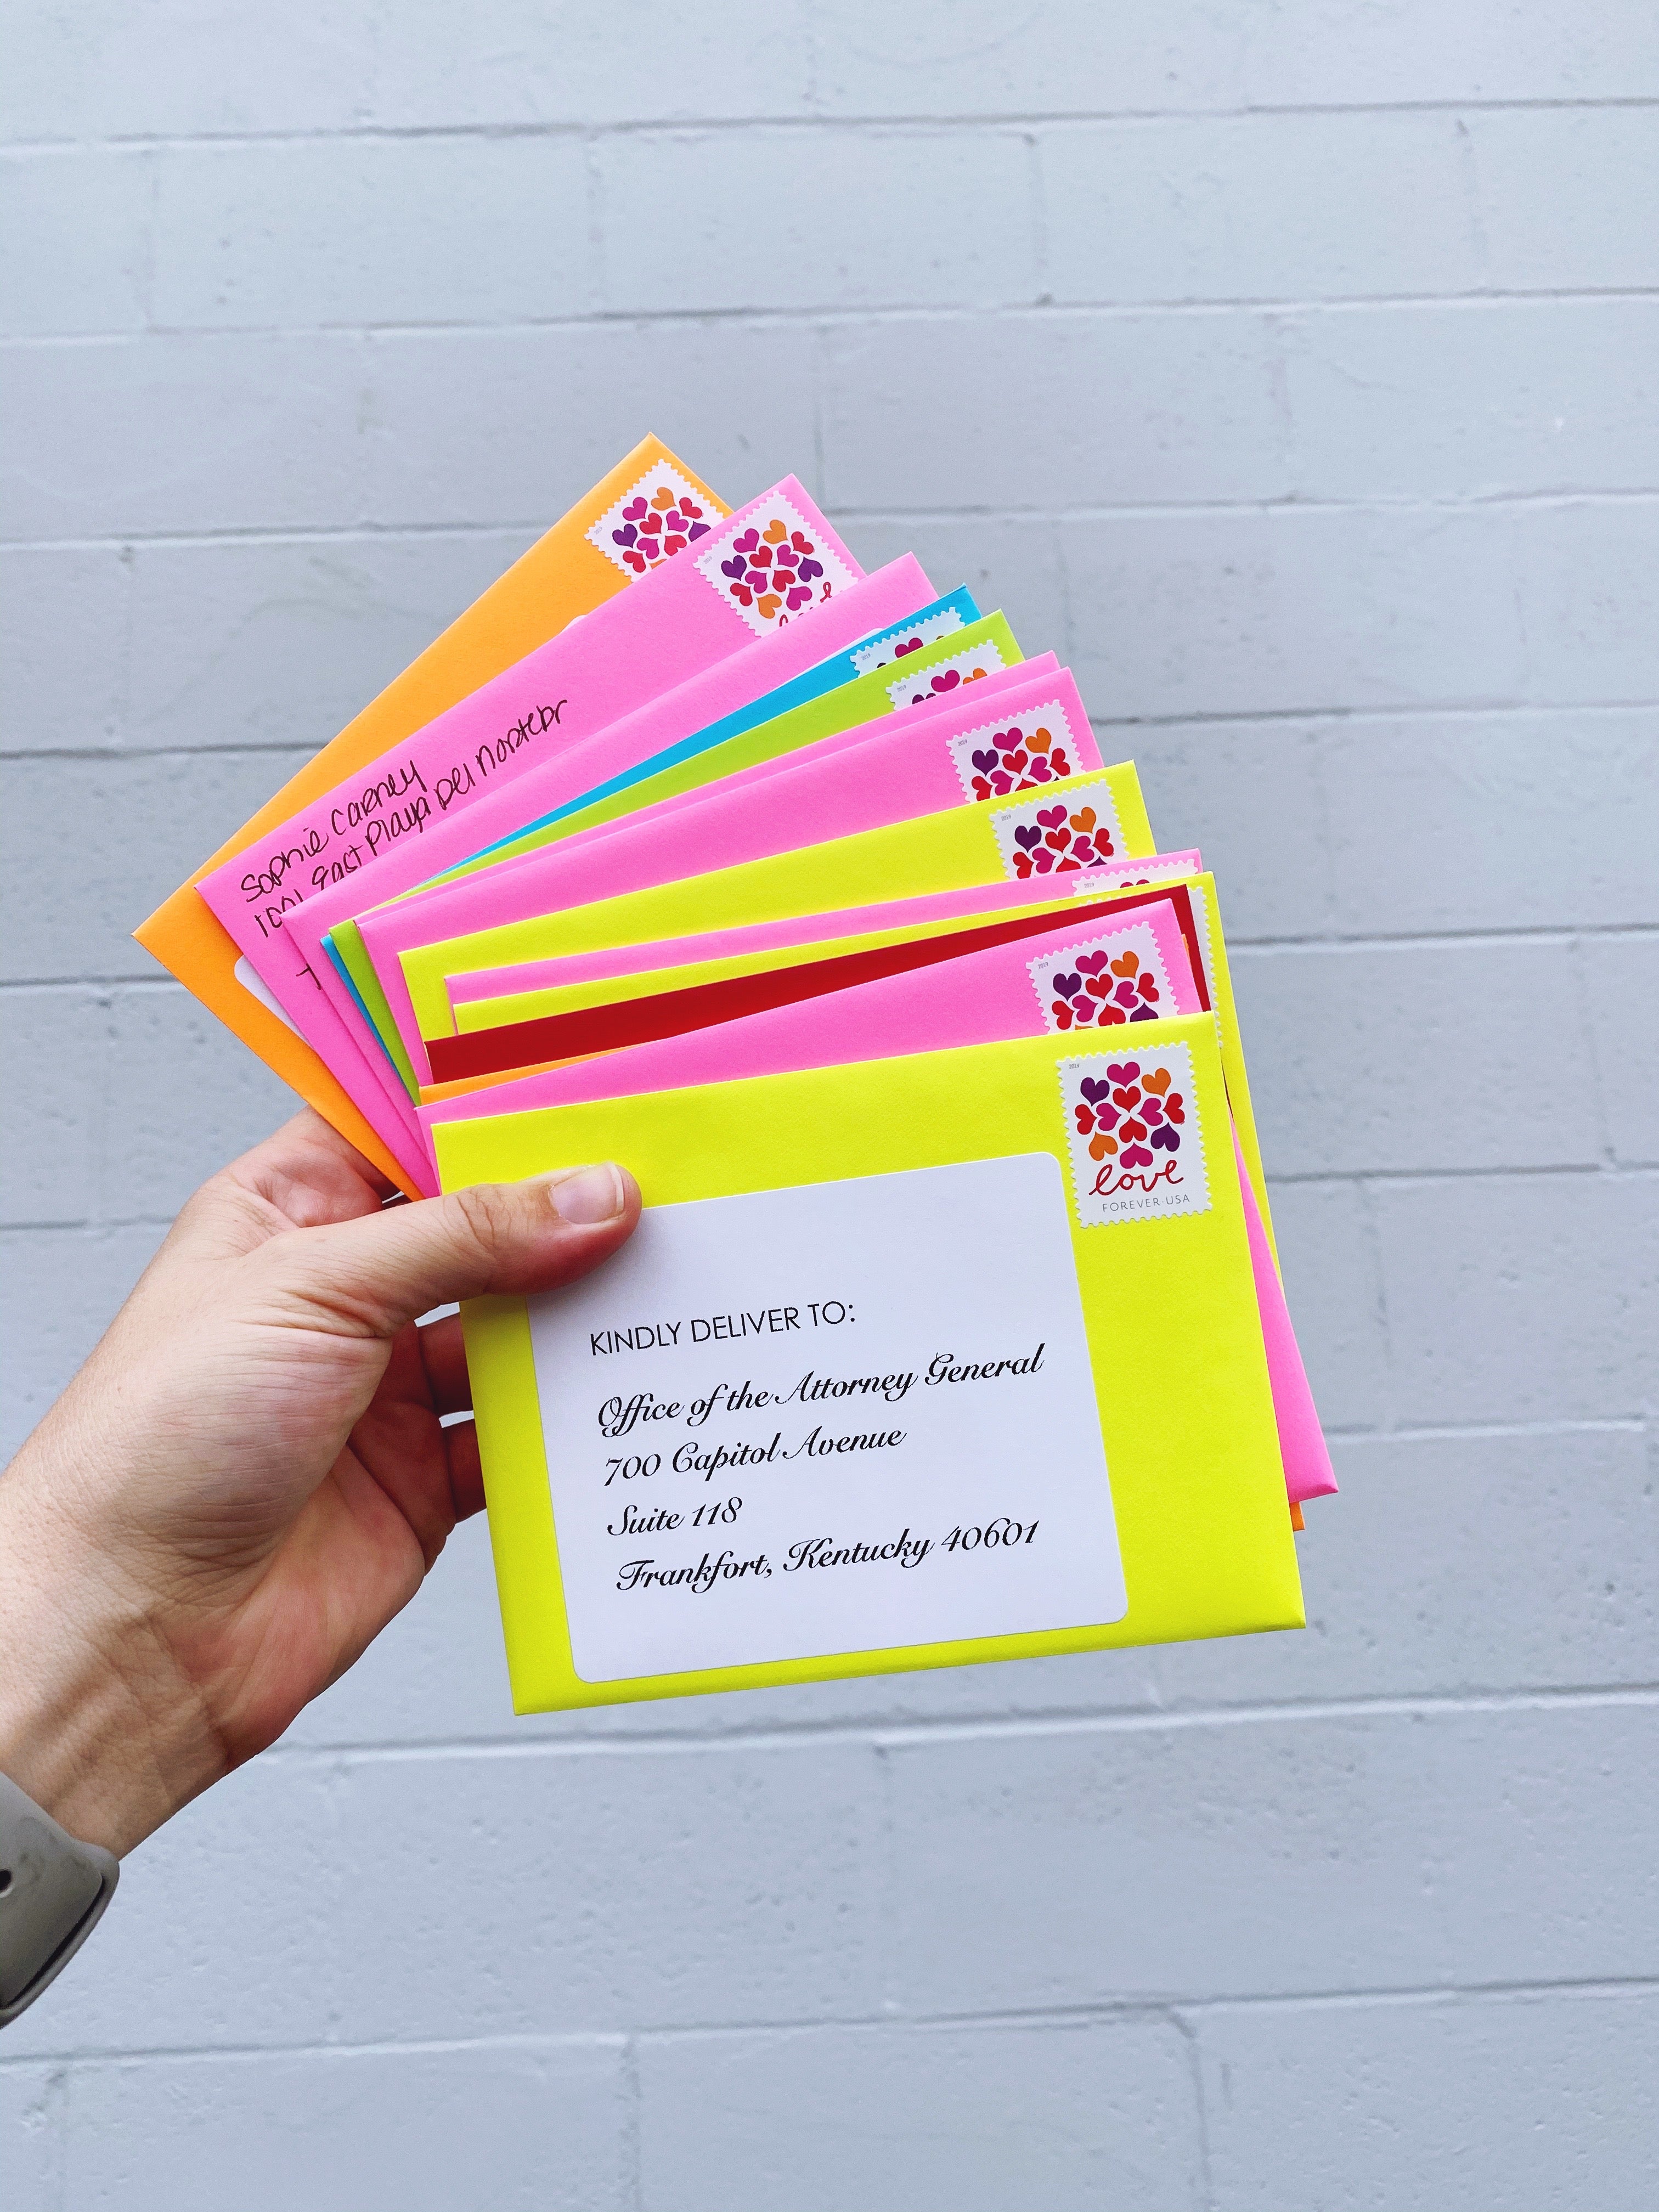 Sophie Carney
1001 East Playa Del Norte Dr
KINDLY DELIVER TO:
Office of the Attorney General
700 Capitol Avenue
Suite 118
Frankfort, Kentucky 40601
2019
love
FOREVER·USA